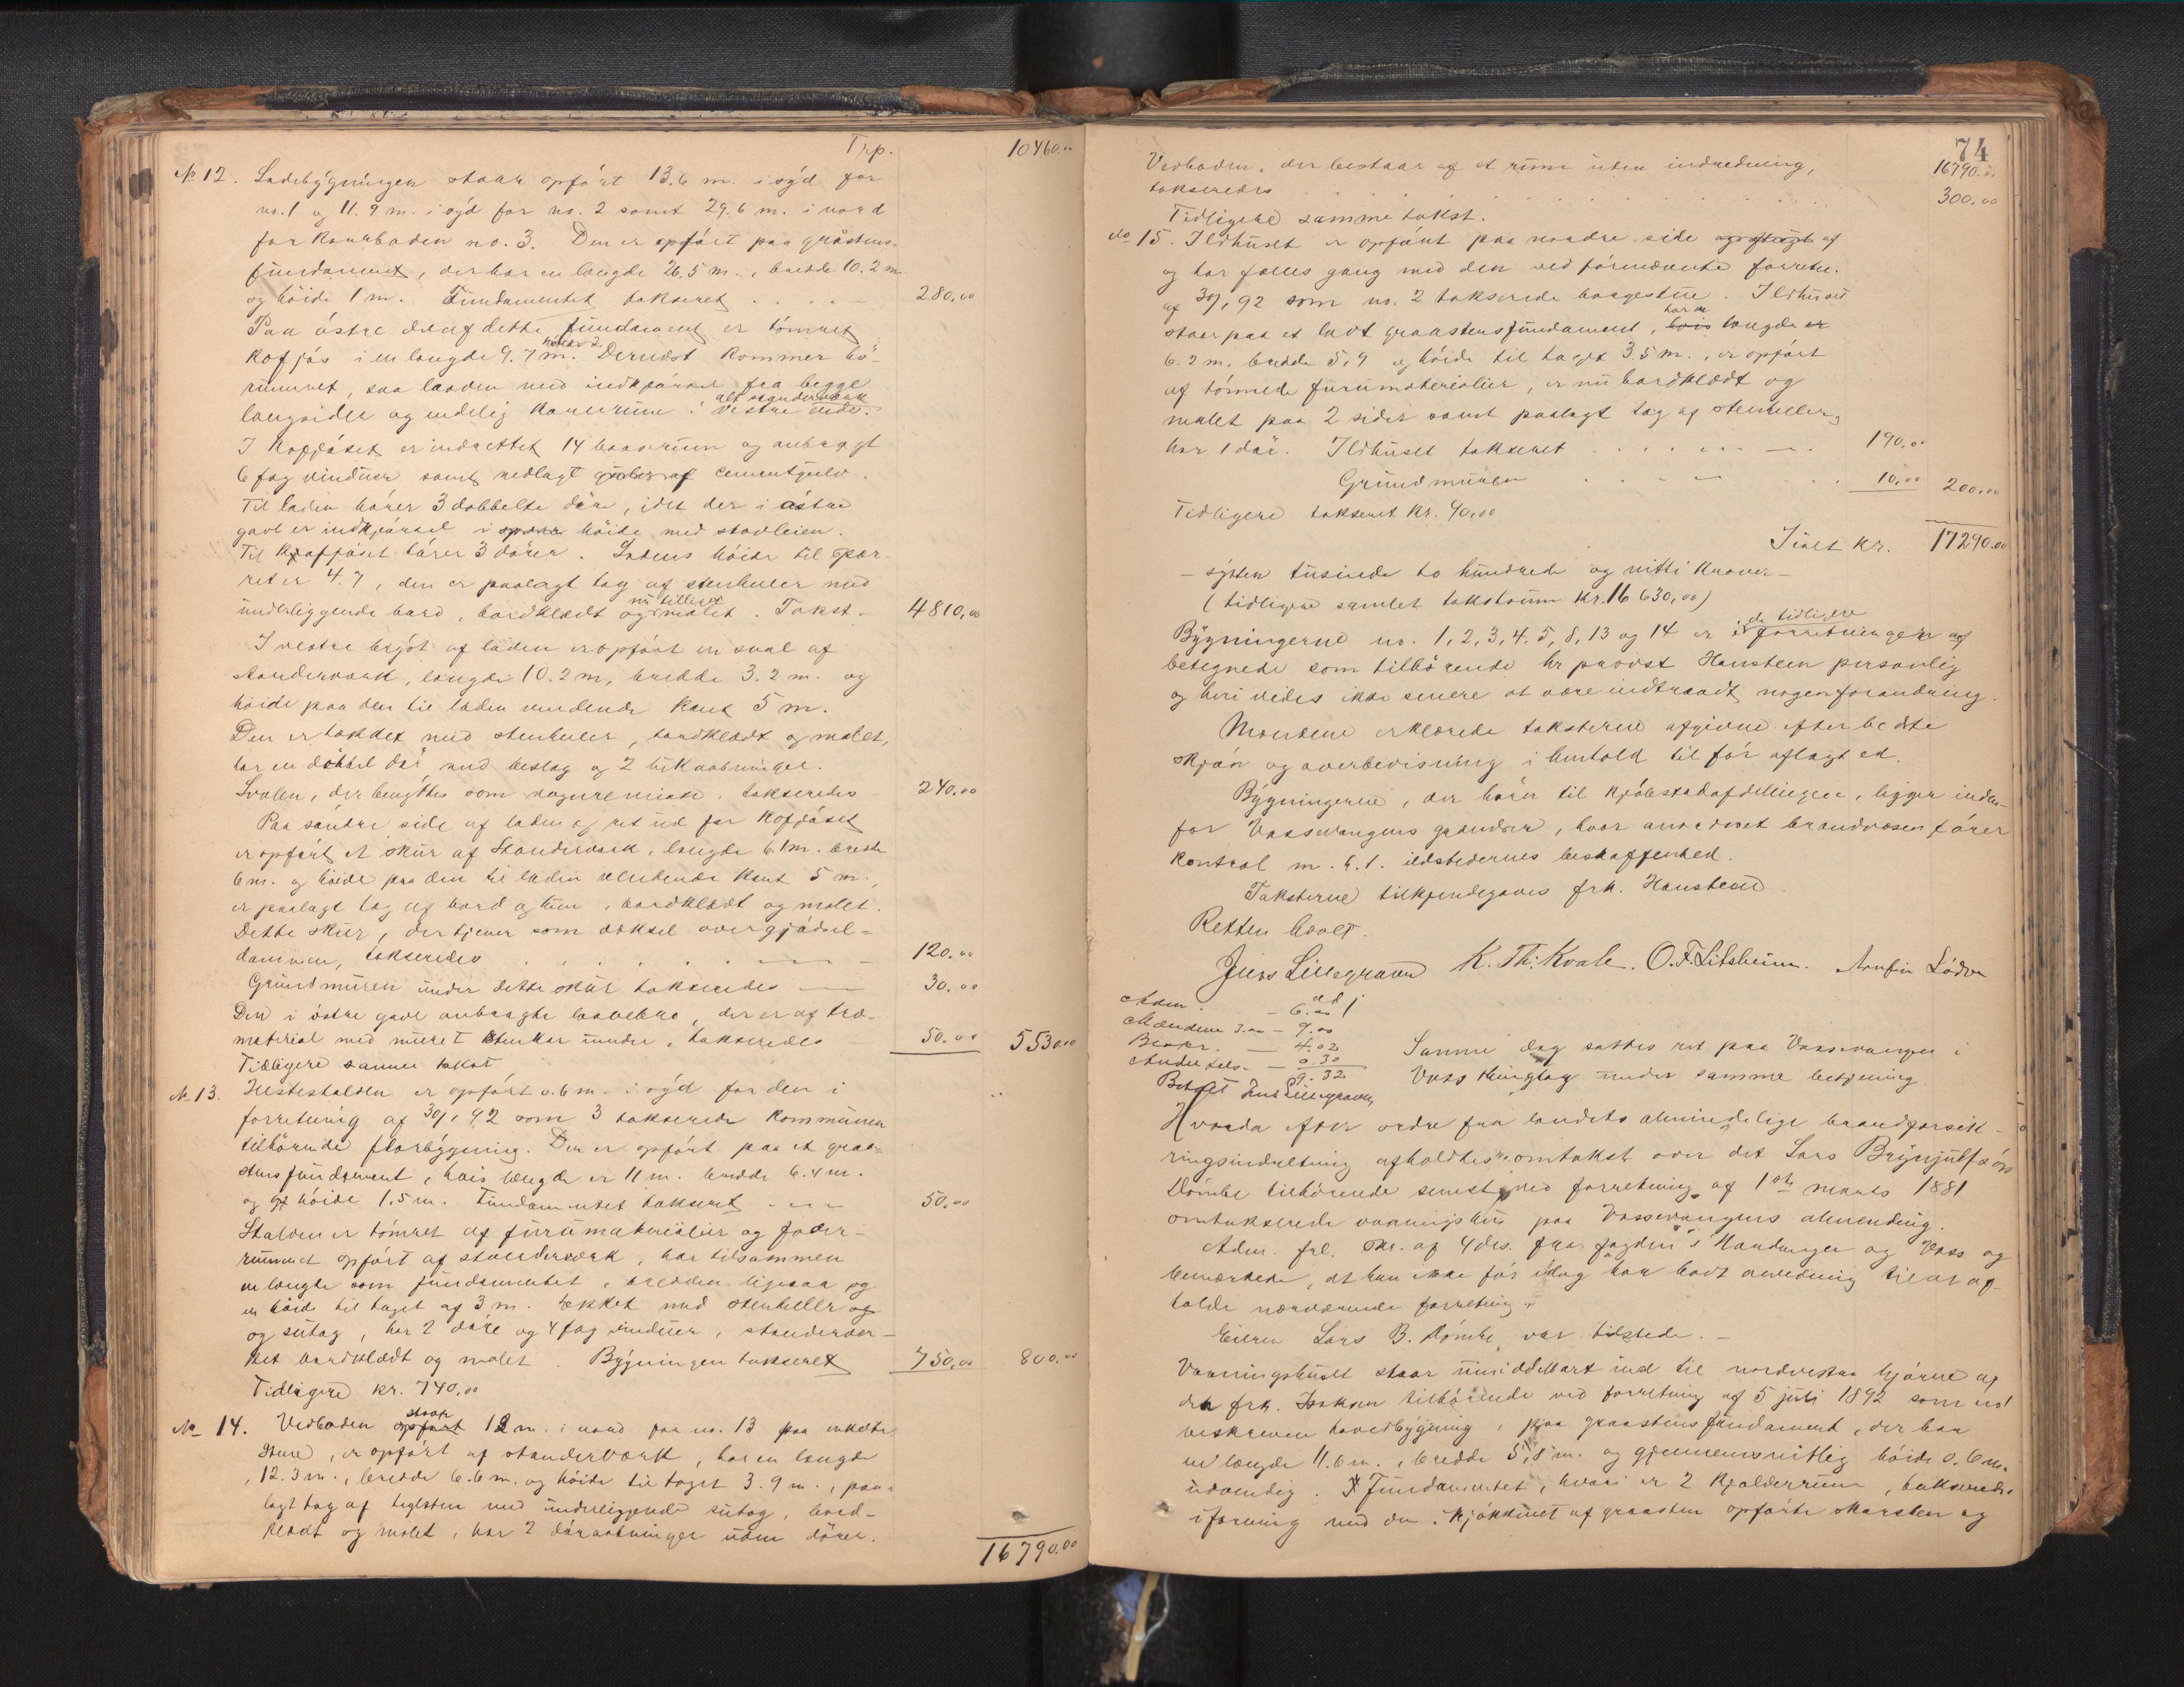 Trp. 10460.00
No 12. Ladebygningen staar opført 13.6 m. i syd for
no. 1 og 11.9 m. i syd for no. 2 samt 29.6 m. i nord
for no. 3. Den er opført paa graastens-
fundament, der har en længde 26.5 m., bredde 10.2 m.
og høide 1 m. Fundamentet takseret 280.00
Paa østre del af dette fundament er tømret
kofjøs i en længde 9.7 m. Dernæst kommer hø-
rummet, saa laaden med indkjørsel fra begge
langsider og endelig i vestre ende. alt standerværk
I kofjøset er indrettet 14 baasrum og anbragt
6 fag vinduer samt nedlagt cementgulv.
Til laden hører 3 dobbelte døre, idet der i østre
gavl er indkjørsel i høide med stavleien.
Til kofjøset hører 3 døre. Ladens høide til spær-
ret er 4.7, den er paalagt tag af stenheller med
underliggende bord, bordklædt og nu tillige malet. Takst. 4810,00
I vestre af laden er opført en sval af
standerværk, længde 10.2 m, bredde 3.2 m. og
høide paa den til laden vendende kant 5 m.
Den er tækket med stenheller, bordklædt og malet,
har en dobbel dør med beslag og 2
Svalen, der benyttes som vognremisse, takseredes 240.00
Paa søndre side af laden og ret ud for kofjøset
er opført et skur af standerværk, længde 6.1 m. bredde
6 m. og høide paa den til laden vendende kant 5 m.,
er paalagt tag af bord og , bordklædt og malet.
Dette skur, der tjener som over gjødsel-
, takseredes 120.00
Grundmuren under dette skur takseredes 30.00
Den i østre gavl anbragte laavebro, der er af træ-
material med muret stenkar under, takseredes 50.00 5530.00
Tidligere samme takst
No 13. Hestestalden er opført 0.6 m. i syd for den i
forretning af 30/ 92 som 3 takserede kommunen
tilhørende florbygning. Den er opført paa et graa-
stensfundament, hvis længde er 11 m. bredde 6.4 m.
og høide 1.5 m. Fundamentet takseret 50.00
Stalden er tømret af furumaterialier og foder-
rummet opført af standerværk, har tilsammen
en længde som fundamentet, bredden ligesaa og
en høide til taget af 3 m. tækket med stenheller og
og sutag, har 2 døre og 4 fag vinduer, standervær-
ket bordklædt og malet. Bygningen takseret 750,00 800.00
Tidligere kr. 740.00
No 14. Vedboden staar 12 m. i nord for no. 13 paa enkelte
stene, er opført af standerværk, har en længde
12.3 m., bredde 6.6 m. og høide til taget 3.9 m., paa-
lagt tag af teglsten med underliggende sutag, bord-
klædt og malet, har 2 døraabninger uden døre.
16790.00
74
Vedboden, der bestaar af et rum uden indredning, 16790.
takseredes 300.00
Tidligere samme takst.
No 15. Ildhuset er opført paa nordre side af
og har fælles gang med den ved førnævnte forretn.
af 30/ 92 som no. 2 takserede borgestue. Ildhuset
staar paa et lavt graastensfundament, har en længde
6.2 m. bredde 5,9 og høide til taget 3.5 m., er opført
af tømrede furumaterialier, er nu bordklædt og
malet paa 2 sider samt paalagt tag af stenheller,
har 1 dør. Ildhuset takseret 190.00
Grundmuren 10.00 200.00
Tidligere takseret kr. 90,00
Ialt kr. 17290.00
– sytten tusinde to hundrede og nitti kroner –
(tidligere samlet takstsum kr. 16 630,00)
Bygningerne no. 1, 2, 3, 4, 5, 8, 13 og 14 er i de tidligere forretninger
betegnede som tilhørende hr provst Hansteen personlig
og heri vides ikke senere at være indtraadt nogen forandring.
Mændene erklærede taksterne afgivne efter bedste
skjøn og overbevisning i henhold til før aflagt ed.
Bygningerne, der hører til kjøbstadafdelingen, ligger inden-
for Vossevangens grændser, hvor anordnet brandvæsen fører
kontrol m. h. t. ildstedernes beskaffenhed.
Taksterne tilkjendegaves frk. Hansteen.
Retten hævet.
Jens Lillegraven K. Th. Kvale. O. F. Litsheim. Arnfin Lødve
Adm. – 6.00
Mændene 3.00 – 9.00
– 4.02
– 0.30
9.32
Betalt Jens Lillegraven
Samme dag sattes ret paa Vossevangen i
Voss thinglag under samme betjening
Hvorda efter ordre fra landets almindelige brandforsik-
ringsindretning afholdtes omtakst over det Lars Brynjulfsøn
Rømbe tilhørende senest ved forretning af 1ste marts 1881
omtakserede vaaningshus paa Vossevangens almending.
Adm. frl. skr. af 4 ds. fra fogden i Hardanger og Voss og
bemærkede, at han ikke før idag har havt anledning til at af-
holde nærværende forretning.
Eieren Lars B. Rømbe var tilstede. –
Vaaningshuset staar umiddelbart ind til nordvestre hjørne af
den frk. tilhørende ved forretning af 5 juli 1892 som no 1
beskrevne hovedbygning, paa graastens fundament, der har
en længde 11.6 m., bredde 5,8 m. og gjennemsnitlig høide 0.6 m.
udvendig. Fundamentet, hvori er 2 kjælderrum, takseredes
i forening med den i kjøkkenet af graasten opførte skorsten og